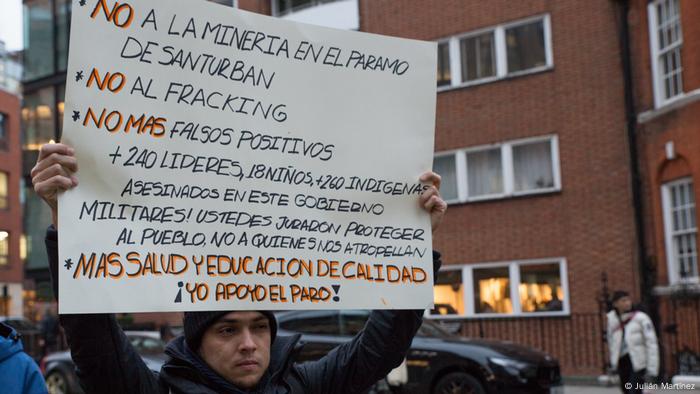 * NO A LA MINERIA EN EL PARAMO
DE SANTURBAN
* NO AL FRACKING
* NO MAS FALSOS POSITIVOS
+240 LIDERES, 18 NIÑOS, +260 INDIGENAS
ASESINADOS EN ESTE GOBIERNO
MILITARES! USTEDES JURARON PROTEGER
AL PUEBLO, NO A QUIENES NOS ATROPELLAN
* MAS SALUD Y EDUCACION DE CALIDAD
¡YO APOYO EL PARO!
© Julián Martínez